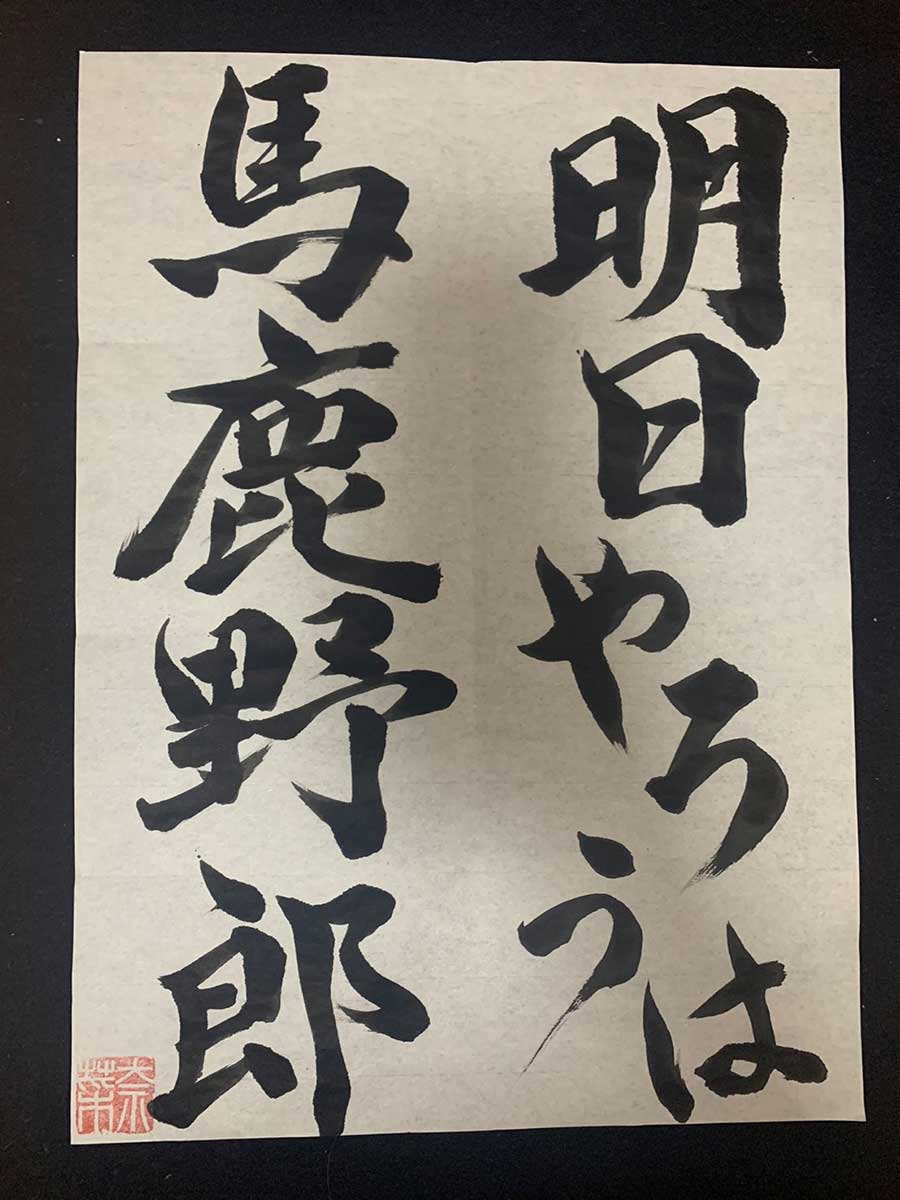 明日やろうは
馬鹿野郎
奈菜